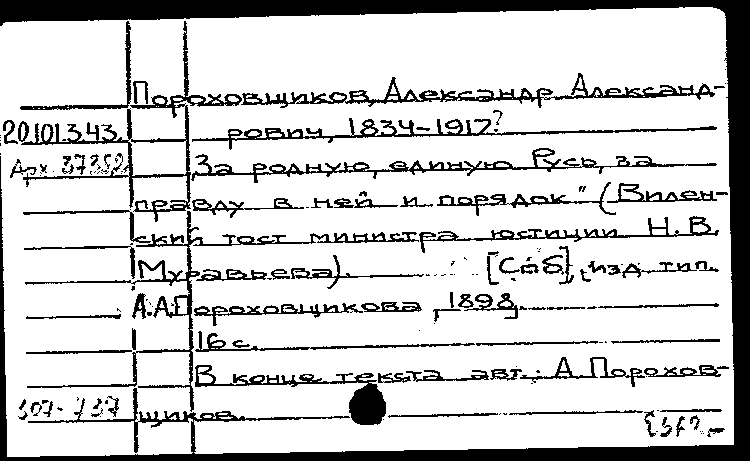 Пороховщиков, Александр Александ-
20.101.3.43. рович, 1834-1917?
Арх 37352 „За родную, единую Русь, за
правду в ней и порядок" (Вилен-
ский тост министра юстиции Н.В.
Муравьева). [Спб], изд. тип.
А.А.Пороховщикова, 1898.
16 с.
В конце текста авт.: А Порохов-
щиков.